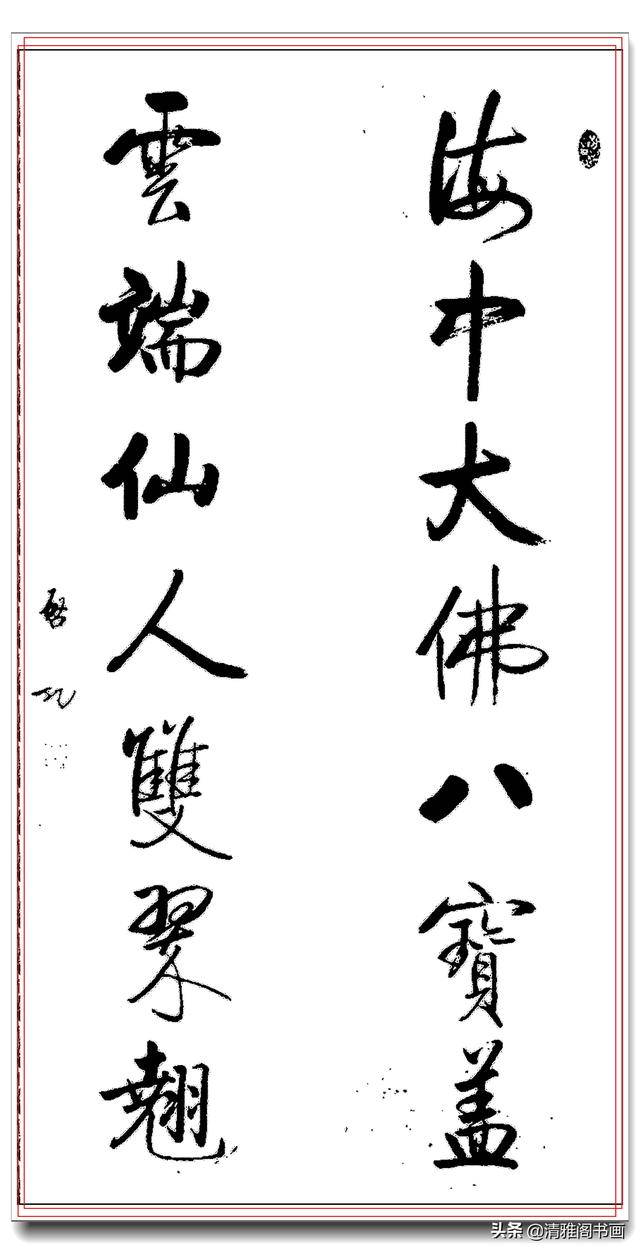 海中大佛八寶盖
雲端仙人雙翠翹
啓功
头条 @清雅阁书画